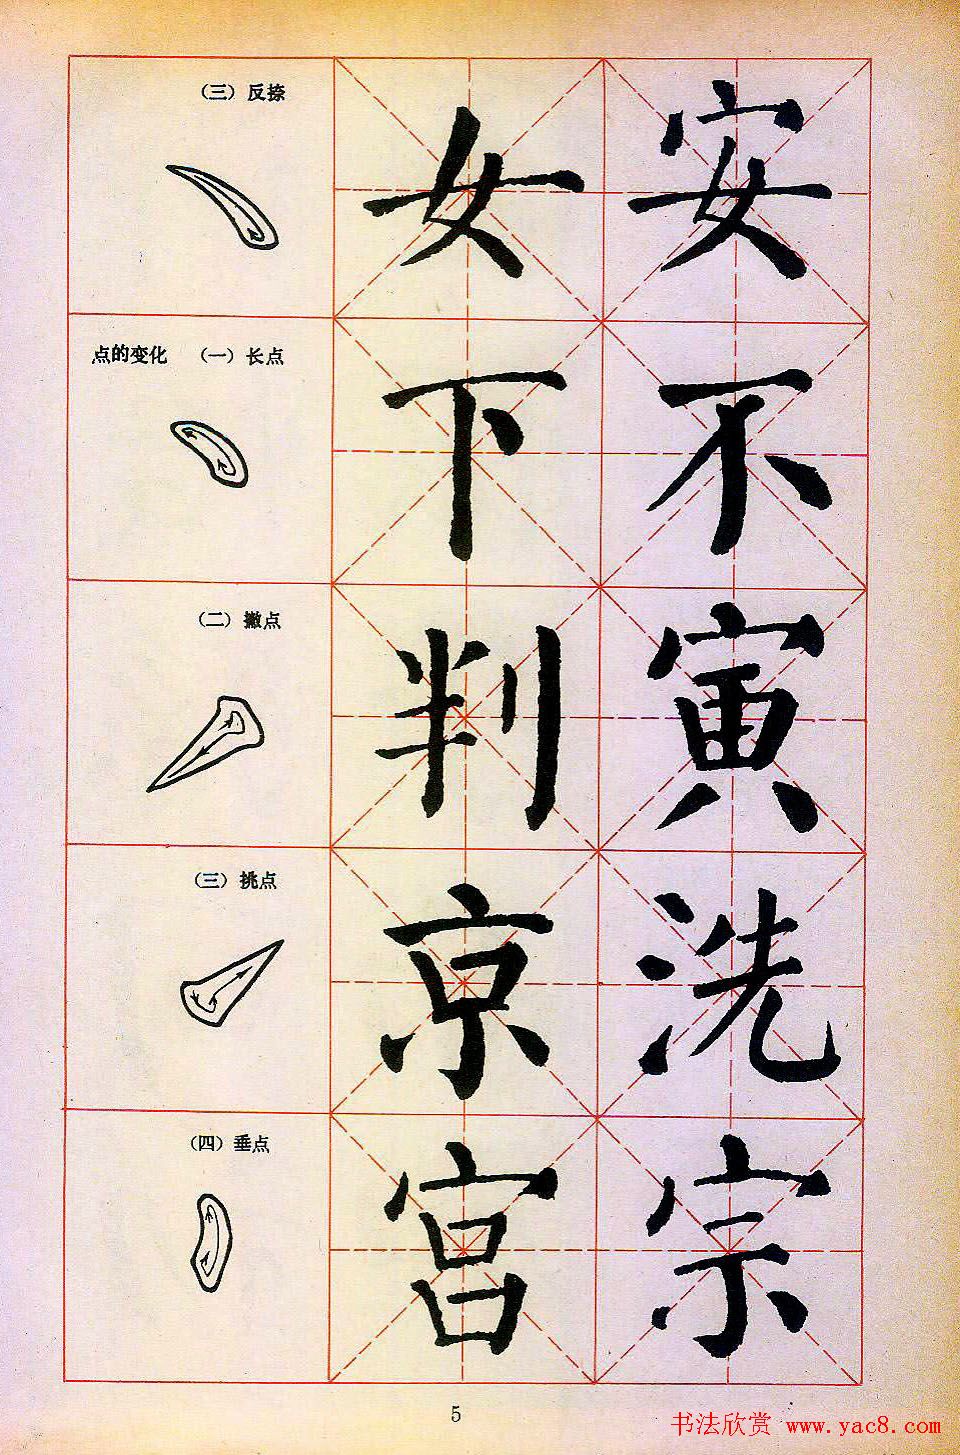 （三）反捺
女 安
点的变化 （一）长点
下 不
（二）撇点
判 寅
（三）挑点
京 洗
（四）垂点
宫 宗
5
书法欣赏 www.yac8.com